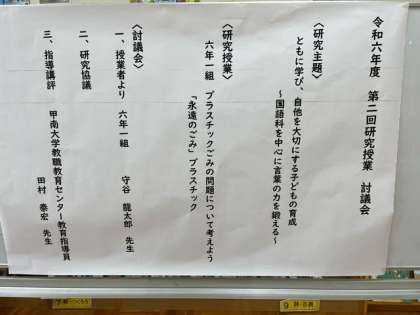 令和六年度　第二回研究授業　討議会
〈研究主題〉
ともに学び、自他を大切にする子どもの育成
～国語科を中心に言葉の力を鍛える～
〈研究授業〉
六年一組　プラスチックごみの問題について考えよう
「永遠のごみ」プラスチック
〈討議会〉
一、授業者より　六年一組　守谷　龍太郎　先生
二、研究協議
三、指導講評　甲南大学教職教育センター教育指導員
田村　泰宏　先生